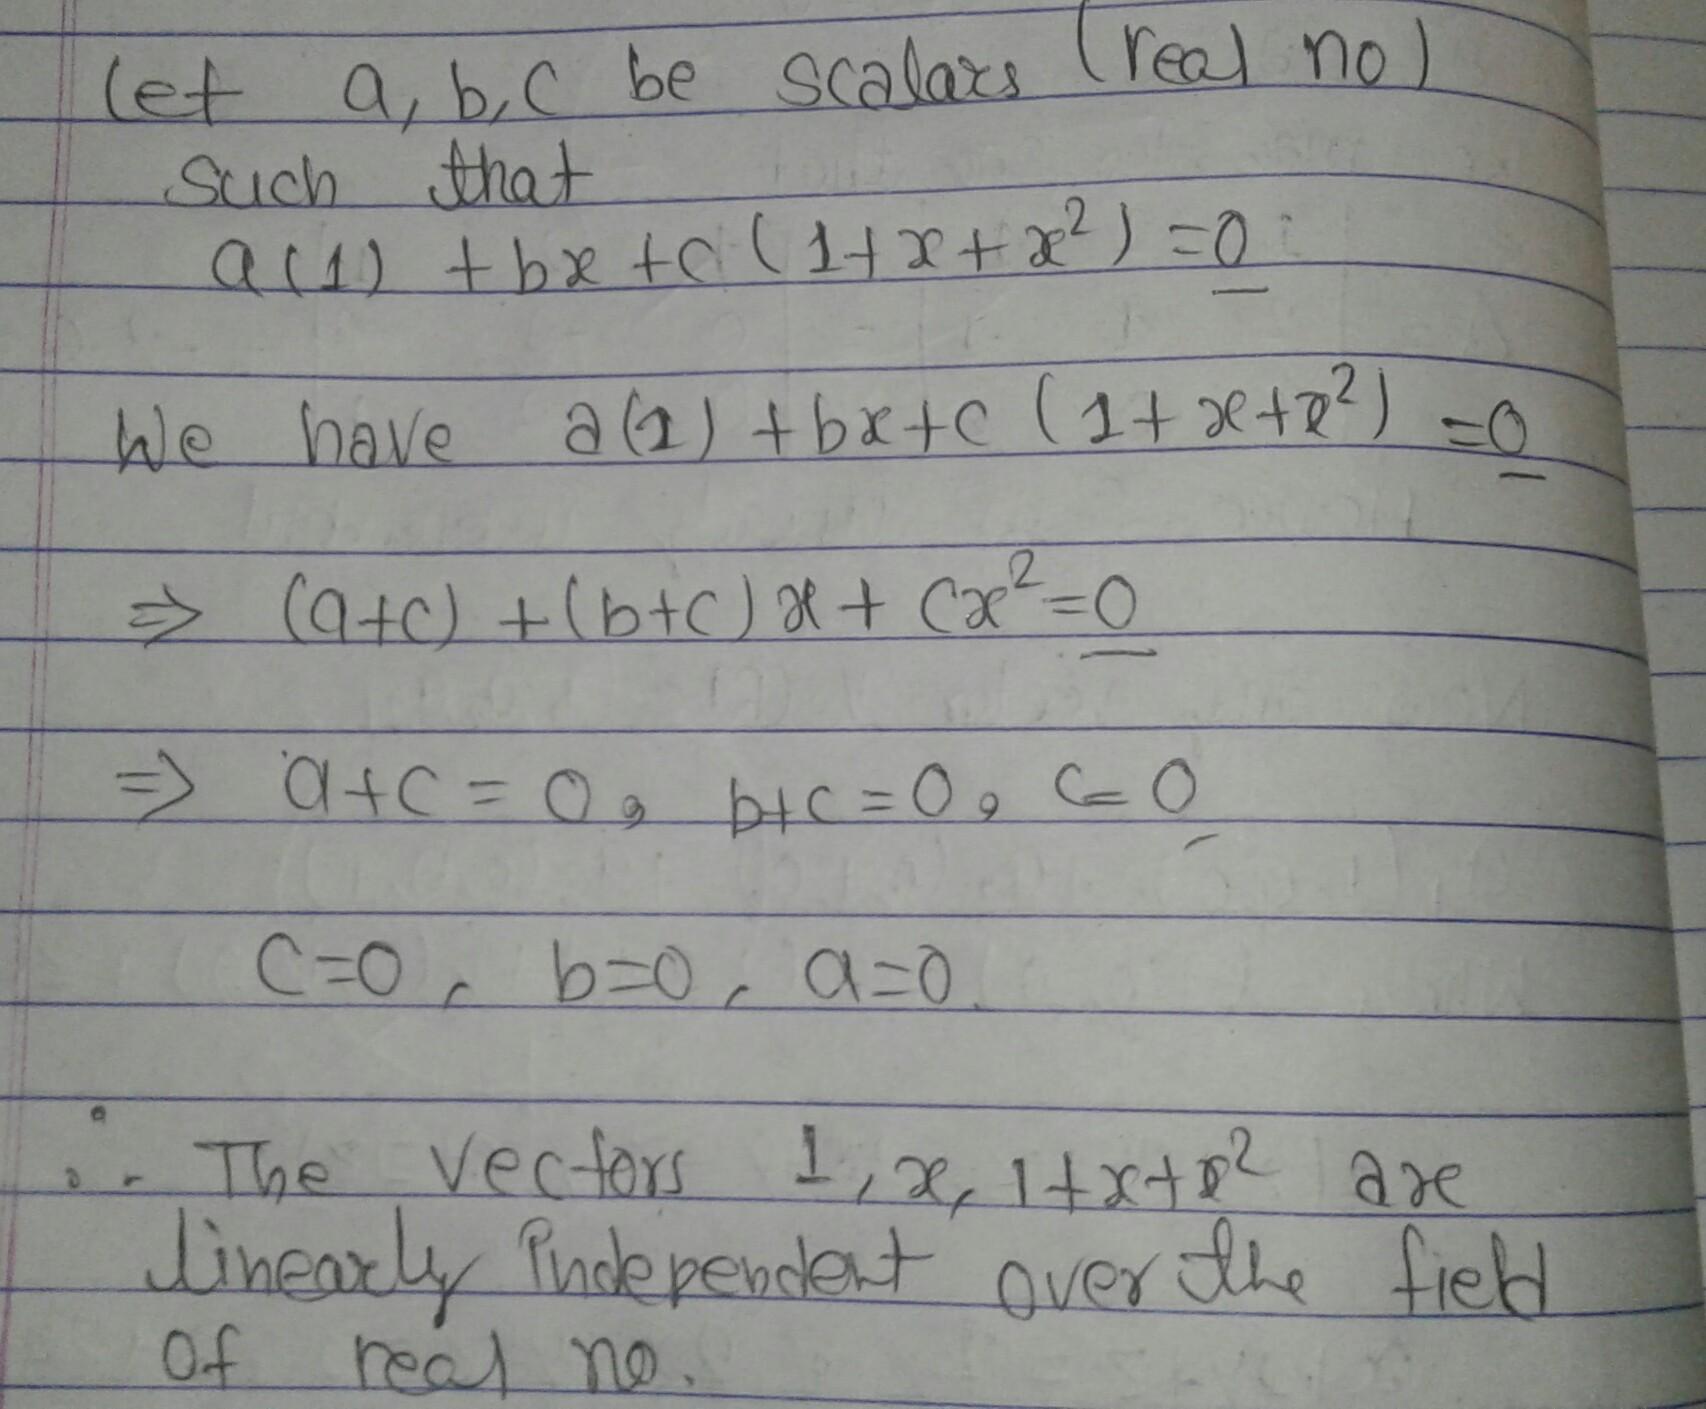 Let a, b, c be scalars (real no)
such that
a(1) + bx + c (1 + x + x²) = 0
We have a(1) + bx + c (1 + x + x²) = 0
⇒ (a+c) + (b+c) x + cx² = 0
⇒ a+c = 0, b+c = 0, c = 0
c=0, b=0, a=0
∴ The vectors 1, x, 1+x+x² are
linearly independent over the field
of real no.